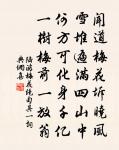 聞道梅花坼曉風
雪堆遍滿四山中
何方可化身千億
一樹梅前一放翁
陸游梅花絕句其一詞
典網書